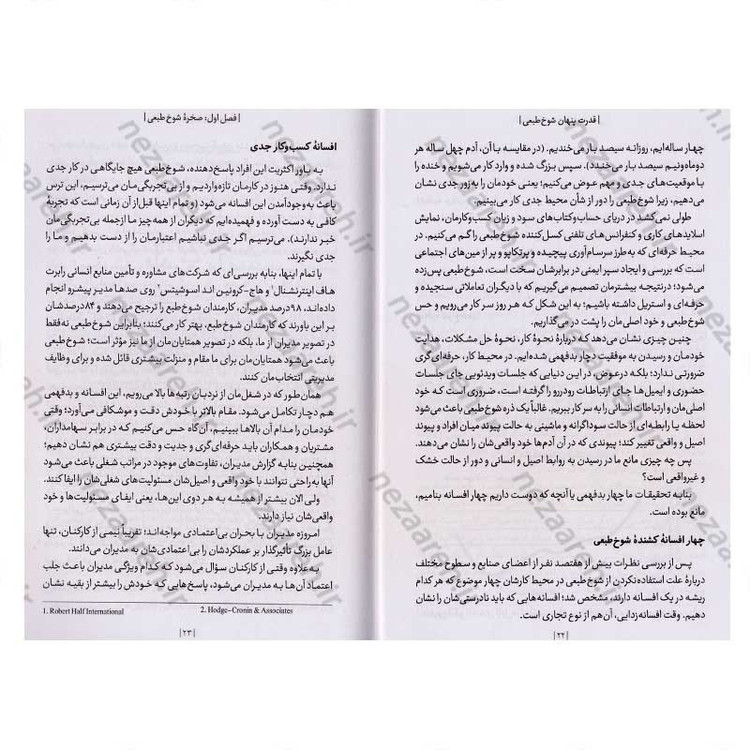 | قدرت پنهان شوخ‌طبعی |
چهار ساله‌ایم، روزانه سیصد بار می‌خندیم. (در مقایسه با آن، آدم چهل ساله هر
دوماه‌ونیم سیصد بار می‌خندد). سپس بزرگ شده و وارد کار می‌شویم و خنده را
با موقعیت‌های جدی و مهم عوض می‌کنیم؛ یعنی خودمان را به زور جدی نشان
می‌دهیم، زیرا شوخ‌طبعی را دور از شأن محیط جدی کار می‌بینیم.
طولی نمی‌کشد در دریای حساب‌وکتاب‌های سود و زیان کسب‌وکارمان، نمایش
اسلایدهای کاری و کنفرانس‌های تلفنی کسل‌کننده شوخ‌طبعی را گم می‌کنیم.
محیط حرفه‌ای که به‌طرز سرسام‌آوری پیچیده و پرتکاپو و پر از مین‌های اجتماعی
است که بررسی و ایجاد سپر ایمنی در برابرشان سخت است، شوخ‌طبعی پس‌زده
می‌شود؛ درنتیجه بیشترمان تصمیم می‌گیریم که با دیگران تعاملاتی سنجیده و
حرفه‌ای و استریل داشته باشیم؛ به این شکل که هر روز سر کار می‌رویم و حس
شوخ‌طبعی و خود اصلی‌مان را پشت در می‌گذاریم.
چنین چیزی نشان می‌دهد که دربارهٔ نحوهٔ کار، نحوهٔ حل مشکلات، هدایت
خودمان و رسیدن به موفقیت دچار بدفهمی شده‌ایم. در محیط کار، حرفه‌ای‌گری
ضرورتی ندارد؛ بلکه درعوض در این دنیایی که جلسات ویدئویی جای جلسات
حضوری و ایمیل‌ها جای ارتباطات رودررو را گرفته است، ضروری است که خود
اصلی‌مان و ارتباطات انسانی را به سر کار ببریم. غالباً یک ذره شوخ‌طبعی باعث می‌شود
لحظه یا رابطه‌ای از حالت سوداگرانه و ماشینی به حالت پیوند میان افراد و پیوند
اصیل و واقعی تغییر کند؛ پیوندی که در آن آدم‌ها خود واقعی‌شان را نشان می‌دهند.
پس چه چیزی مانع ما در رسیدن به روابط اصیل و انسانی و دور از حالت خشک
و غیرواقعی است؟
بنابه تحقیقات ما چهار بدفهمی یا آنچه که دوست داریم چهار افسانه بنامیم،
مانع بوده است.
چهار افسانهٔ کشندهٔ شوخ‌طبعی
پس از بررسی نظرات بیش از هفتصد نفر از اعضای صنایع و سطوح مختلف
دربارهٔ علت استفاده‌نکردن از شوخ‌طبعی در محیط کارشان چهار موضوع که هر کدام
ریشه در یک افسانه دارند، مشخص شد؛ افسانه‌هایی که باید نادرستی‌شان را نشان
دهیم. وقت افسانه‌زدایی، آن‌هم از نوع تجاری است.
| ۲۲ |
| فصل اول: صخرهٔ شوخ‌طبعی |
افسانهٔ کسب‌وکار جدی
به باور اکثریت این افراد پاسخ‌دهنده، شوخ‌طبعی هیچ جایگاهی در کار جدی
ندارد. وقتی هنوز در کارمان تازه‌واردیم و از بی‌تجربگی‌مان می‌ترسیم، این ترس
باعث به‌وجودآمدن این افسانه می‌شود (و تمام اینها قبل‌از آن زمانی است که تجربهٔ
کافی به دست آورده و فهمیده‌ایم که دیگران از همه چیز ما ازجمله بی‌تجربگی‌مان
خبر ندارند). می‌ترسیم اگر جدی نباشیم اعتبارمان را از دست بدهیم و ما را
جدی نگیرند.
با تمام اینها، بنابه بررسی‌ای که شرکت‌های مشاوره و تأمین منابع انسانی رابرت
هاف اینترنشنال¹ و هاج-کرونین اند اسوشیتس² روی صدها مدیر پیشرو انجام
داده‌اند، ۹۸درصد مدیران، کارمندان شوخ‌طبع را ترجیح می‌دهند و ۸۴درصدشان
بر این باورند که کارمندان شوخ‌طبع، بهتر کار می‌کنند؛ بنابراین شوخ‌طبعی نه‌فقط
در تصویر مدیران از ما، بلکه در تصویر همتایان‌مان از ما نیز مؤثر است؛ شوخ‌طبعی
باعث می‌شود همتایان‌مان برای ما مقام و منزلت بیشتری قائل شده و برای وظایف
مدیریتی انتخاب‌مان کنند.
همان‌طور که در شغل‌مان از نردبان رتبه‌ها بالا می‌رویم، این افسانه و بدفهمی
هم دچار تکامل می‌شود. مقام بالاتر با خودش دقت و موشکافی می‌آورد؛ وقتی
خودمان را مدام آن بالاها ببینیم، آن‌گاه حس می‌کنیم که در برابر سهامداران،
مشتریان و همکاران باید حرفه‌ای‌گری و جدیت و دقت بیشتری هم نشان دهیم؛
همچنین بنابه گزارش مدیران، تفاوت‌های موجود در مراتب شغلی باعث می‌شود
آنها به‌راحتی نتوانند با خود واقعی و اصیل‌شان مسئولیت‌های شغلی‌شان را ایفا کنند.
ولی الان بیشتر از همیشه به هر دوی این‌ها، یعنی ایفای مسئولیت‌ها و خود
واقعی‌شان نیاز دارند.
امروزه مدیران با بحران بی‌اعتمادی مواجه‌اند؛ تقریباً نیمی از کارکنان، تنها
عامل بزرگ تأثیرگذار بر عملکردشان را بی‌اعتمادی‌شان به مدیران می‌دانند.
به‌علاوه وقتی از کارکنان سؤال می‌شود که کدام ویژگی مدیران باعث جلب
اعتماد آن‌ها به مدیران می‌شود، پاسخ‌هایی که خودش را بیشتر از بقیه نشان
1. Robert Half International
2. Hodge-Cronin & Associates
| ۲۳ |
nezaareh.ir